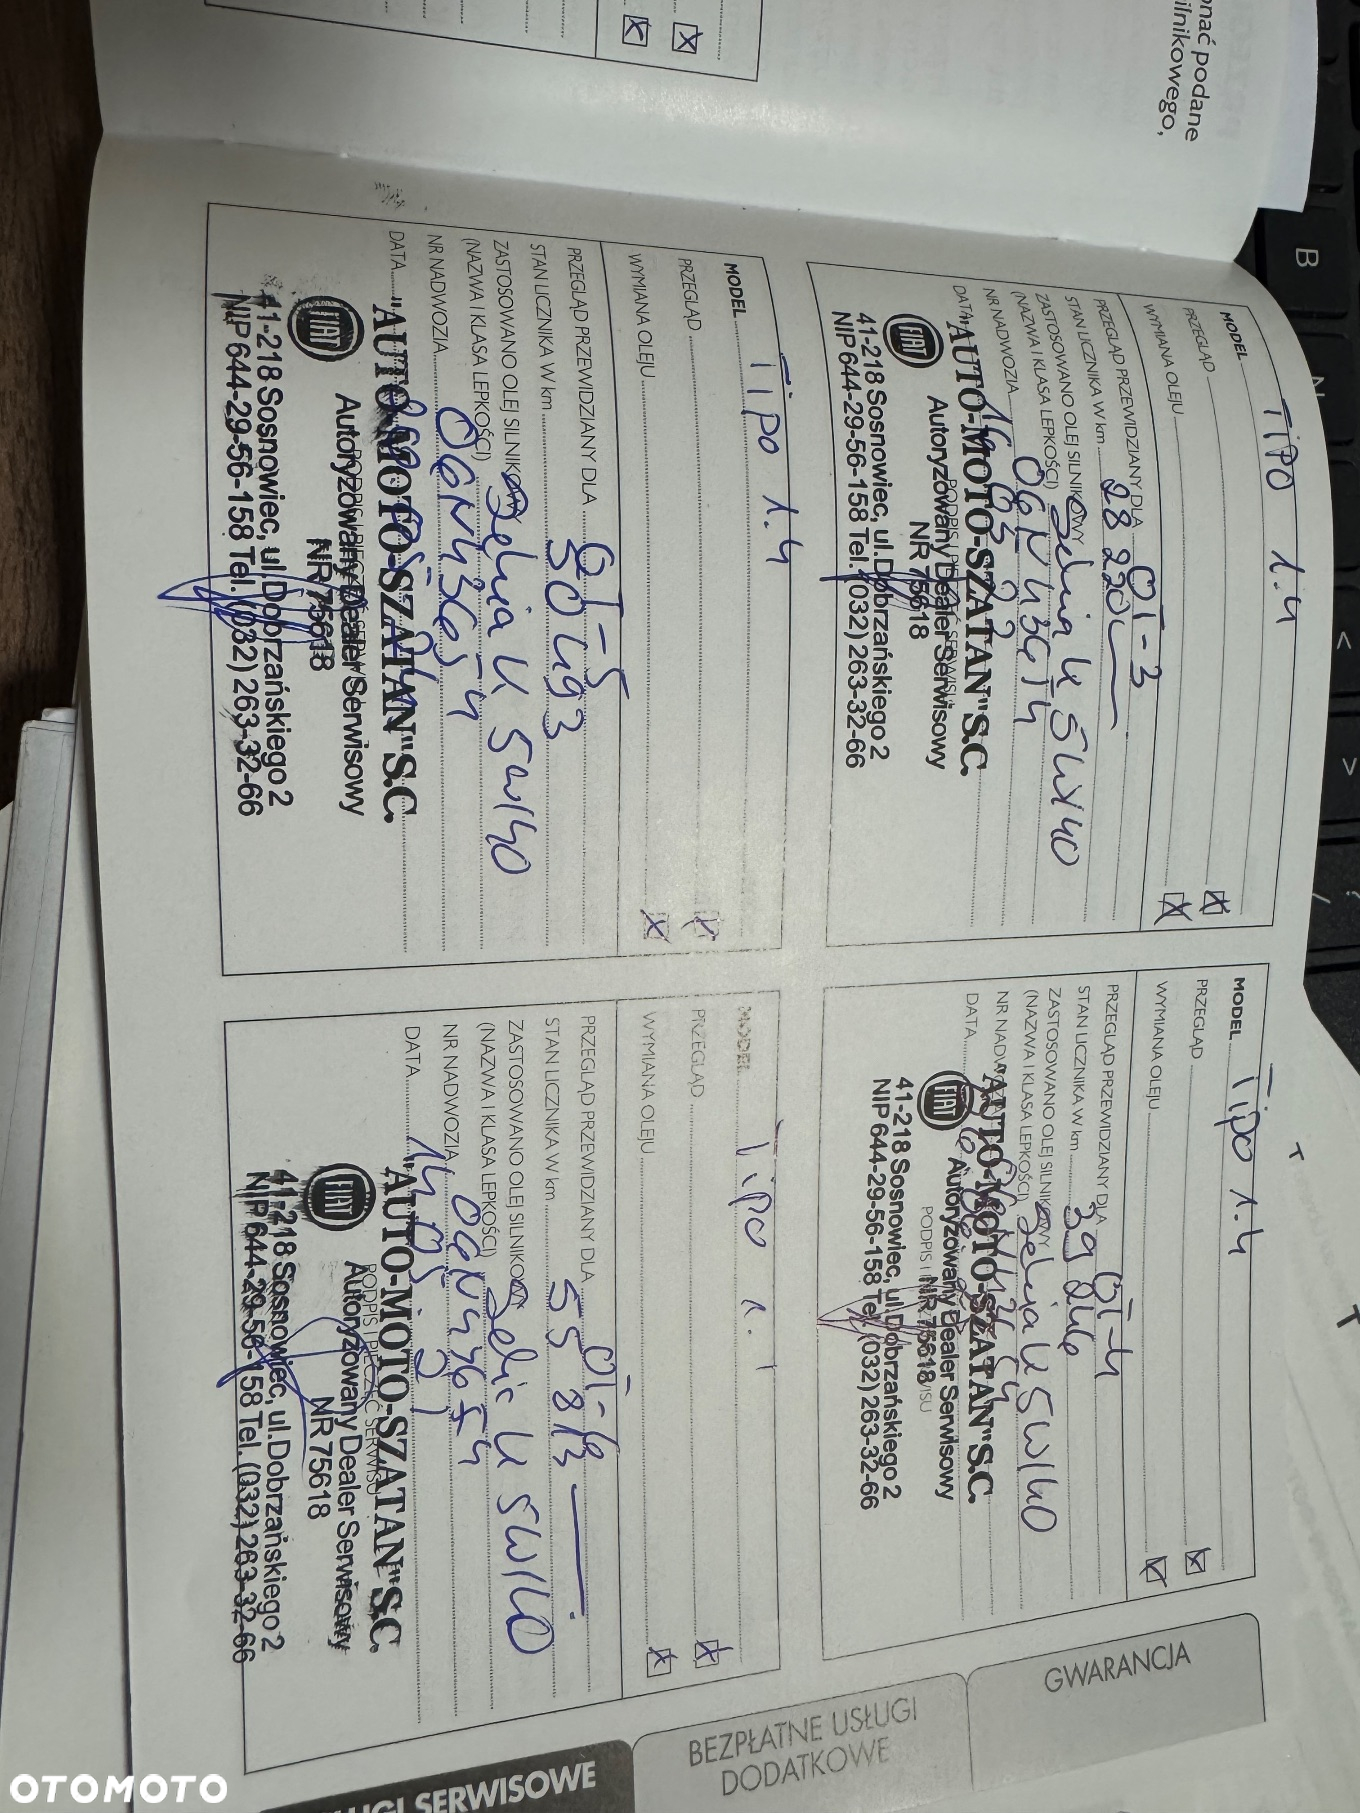 nać podane
ilnikowego,
MODEL Tipo 1.4
PRZEGLĄD
WYMIANA OLEJU
PRZEGLĄD PRZEWIDZIANY DLA OT-3
STAN LICZNIKA W km 28 220
ZASTOSOWANO OLEJ SILNIKOWY Selnia K 5W40
(NAZWA I KLASA LEPKOŚCI)
NR NADWOZIA
DATA
"AUTO-MOTO-SZATAN"S.C.
FIAT
Autoryzowany Dealer Serwisowy
NR 75618
41-218 Sosnowiec, ul.Dobrzańskiego 2
NIP 644-29-56-158 Tel. (032) 263-32-66
MODEL Tipo 1.4
PRZEGLĄD
WYMIANA OLEJU
PRZEGLĄD PRZEWIDZIANY DLA OT-4
STAN LICZNIKA W km
ZASTOSOWANO OLEJ SILNIKOWY Selnia K 5W40
(NAZWA I KLASA LEPKOŚCI)
NR NADWOZIA
DATA
"AUTO-MOTO-SZATAN"S.C.
FIAT
Autoryzowany Dealer Serwisowy
NR 75618
41-218 Sosnowiec, ul.Dobrzańskiego 2
NIP 644-29-56-158 Tel. (032) 263-32-66
MODEL Tipo 1.4
PRZEGLĄD
WYMIANA OLEJU
PRZEGLĄD PRZEWIDZIANY DLA OT-5
STAN LICZNIKA W km 50493
ZASTOSOWANO OLEJ SILNIKOWY Selnia K 5W40
(NAZWA I KLASA LEPKOŚCI)
NR NADWOZIA
DATA
"AUTO-MOTO-SZATAN"S.C.
FIAT
Autoryzowany Dealer Serwisowy
NR 75618
41-218 Sosnowiec, ul.Dobrzańskiego 2
NIP 644-29-56-158 Tel. (032) 263-32-66
MODEL Tipo
PRZEGLĄD
WYMIANA OLEJU
PRZEGLĄD PRZEWIDZIANY DLA OT-6
STAN LICZNIKA W km 55 813
ZASTOSOWANO OLEJ SILNIKOWY K 5W40
(NAZWA I KLASA LEPKOŚCI)
NR NADWOZIA
DATA
"AUTO-MOTO-SZATAN"S.C.
PODPIS I PIECZĘĆ SERWISU
FIAT
Autoryzowany Dealer Serwisowy
NR 75618
41-218 Sosnowiec, ul.Dobrzańskiego 2
NIP 644-29-56-158 Tel. (032) 263-32-66
GWARANCJA
BEZPŁATNE USŁUGI
DODATKOWE
SERWISOWE
B
OTOMOTO